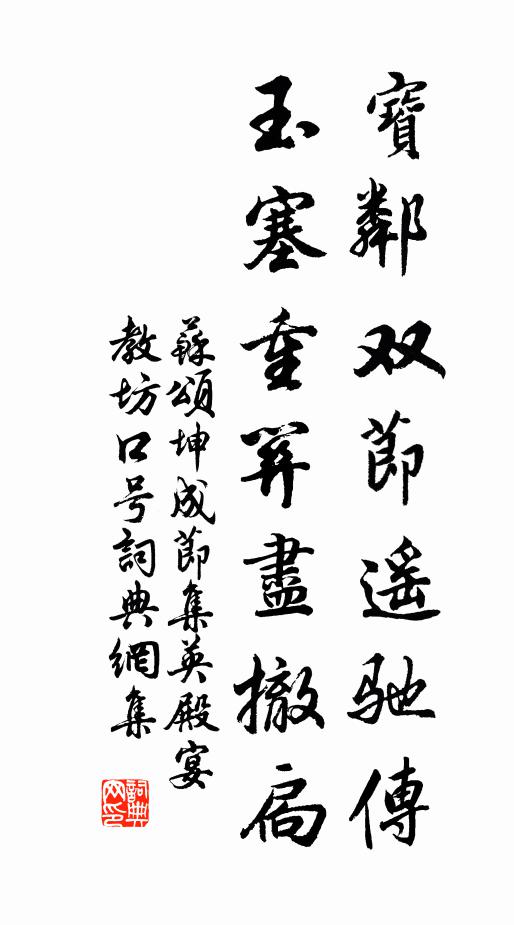 寶鄰双莭遥驰傳
玉塞重関盡撤扃
蘇頌坤成莭集英殿宴
教坊口号詞典網集
詞典网印